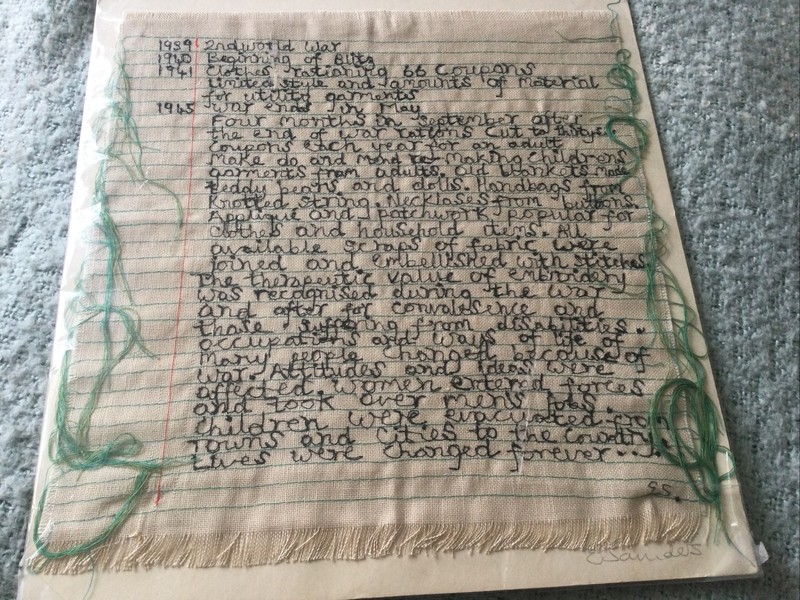 1939 2nd world War
1940 Beginning of Blitz
1941 Clothes rationing 66 Coupons
Limited style and amounts of Material
for utility garments
1945 War ends in May
Four months in September after
the end of war rations cut to thirtysix
coupons each year for an adult
Make do and mend Making childrens
garments from adults. Old blankets made
teddy bears and dolls. Handbags from
Knotted string. Necklases from buttons.
Applique and patchwork popular for
clothes and household items. All
available scraps of fabric were
joined and embellished with stitches
The therapeutic value of embroidery
was recognised during the War
and after for convalesence and
those suffering from disabilities.
occupations and ways of life of
many people changed because of
war. Attitudes and ideas were
affected women entered forces
and took over mens jobs.
Children were evacuated from
Towns and Cities to the Country.
Lives were changed forever...